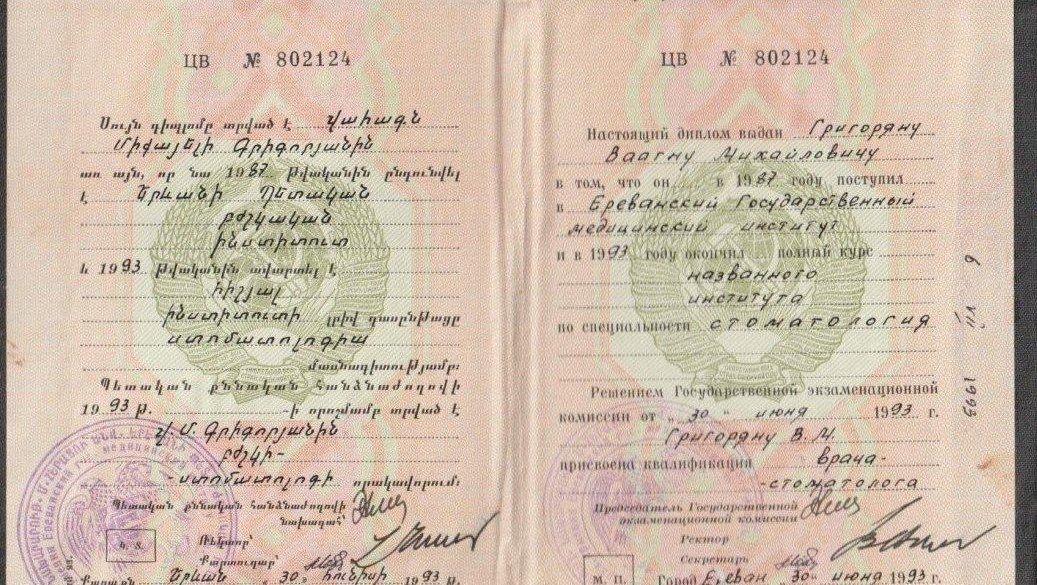 ЦВ № 802124
Սույն դիպլոմը տրված է Վահագն
Միքայելի Գրիգորյանին
առ այն, որ նա 1987 թվականին ընդունվել
է Երևանի Պետական
բժշկական
ինստիտուտ
և 1993 թվականին ավարտել է
հիշյալ
ինստիտուտի լրիվ դասընթացը
ստոմատոլոգիա
մասնագիտությամբ:
Պետական քննական հանձնաժողովի
1993 թ. -ի որոշմամբ տրված է
Վ. Մ. Գրիգորյանին
բժշկի-
-ստոմատոլոգի որակավորում:
Պետական քննական հանձնաժողովի
նախագահ՝
Ռեկտոր՝
Կ. Տ. Քարտուղար՝
Քաղաքն Երևան 30 հունիսի 1993 թ.
ЦВ № 802124
Настоящий диплом выдан Григоряну
Ваагну Михайловичу
в том, что он в 1987 году поступил
в Ереванский Государственный
медицинский институт
и в 1993 году окончил полный курс
названного
института
по специальности стоматология
Решением Государственной экзаменационной
комиссии от „ 30 “ июня 1993 г.
Григоряну В. М.
присвоена квалификация врача-
-стоматолога
Председатель Государственной
экзаменационной комиссии
Ректор
Секретарь
М. П. Город Ереван „30“ июня 1993 г.
1993